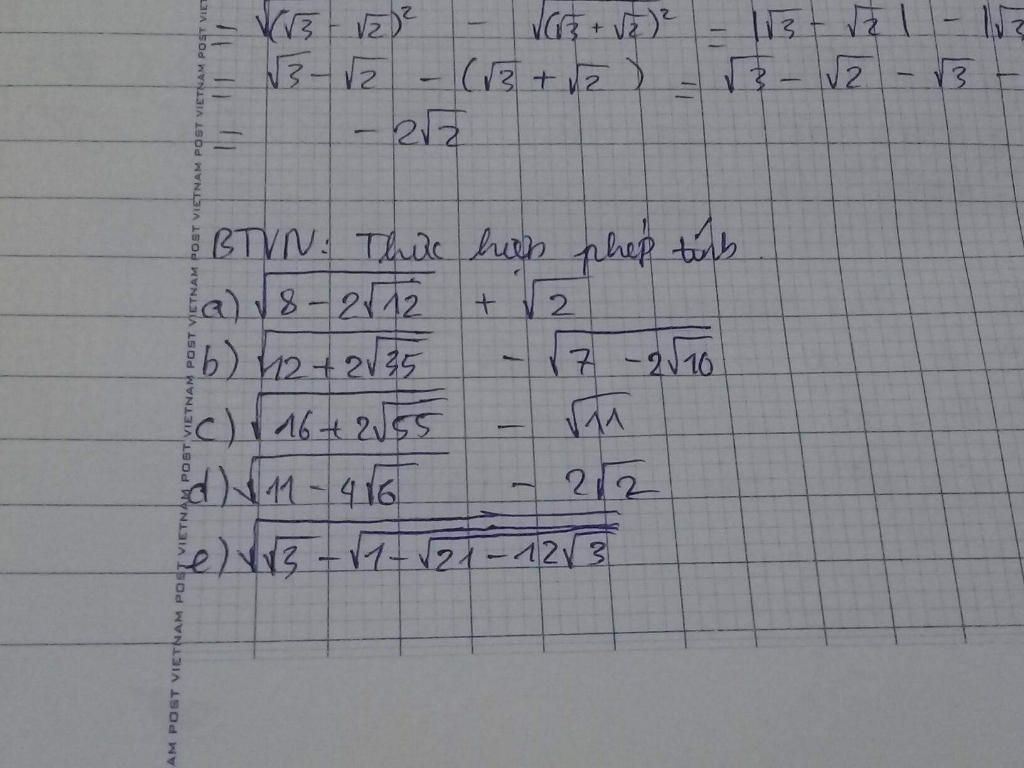 = √(√3 - √2)² - √(√3 + √2)² = |√3 - √2| - |√3
= √3 - √2 - (√3 + √2) = √3 - √2 - √3 -
= - 2√2
BTVN: Thực hiện phép tính
a) √(8 - 2√12) + √2
b) √(12 + 2√35) - √(7 - 2√10)
c) √(16 + 2√55) - √11
d) √(11 - 4√6) - 2√2
e) √(√3 - √(1 - √(21 - 12√3)))
VIETNAM POST VIETNAM POST VIETNAM POST VIETNAM POST VIETNAM POST VIETNAM POST